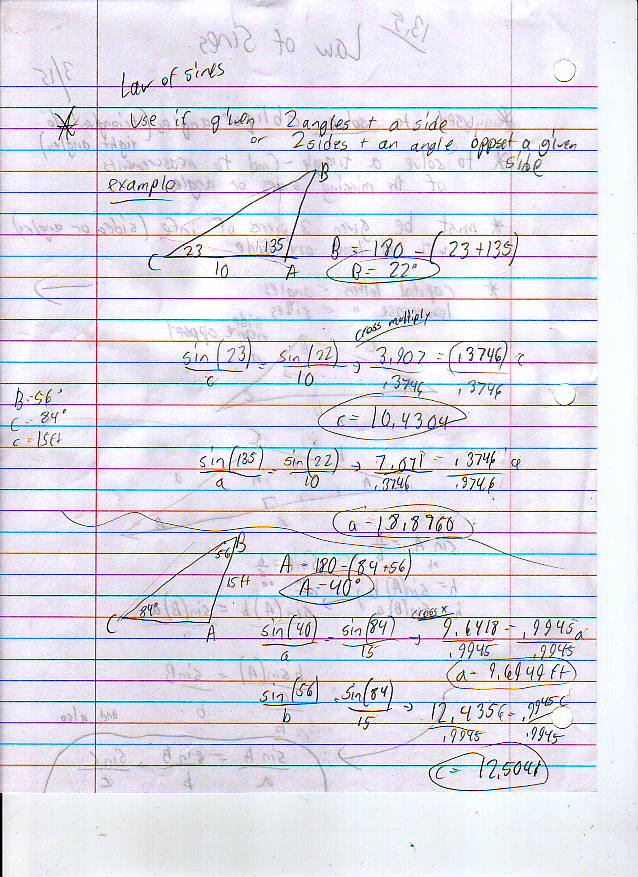 Law of sines
* Use if given 2 angles + a side
or 2 sides + an angle opposet a given side
example
B
23 135
C 10 A
B = 180 - (23+135)
B = 22°
cross multiply
sin(23)/c = sin(22)/10 → 3.907/.3746 = (.3746)c/.3746
c = 10.4304
B=56°
C = 84°
c = 15ft
sin(135)/a = sin(22)/10 → 7.071/.3746 = .3746 a/.3746
a = 18.8760
B
56
15ft
84°
C A
A = 180-(84+56)
A = 40°
cross x
sin(40)/a = sin(84)/15 → 9.6418/.9945 = .9945a/.9945
a = 9.6949 ft
sin(56)/b = sin(84)/15 → 12.4356/.9945 = .9945c/.9945
c = 12.5041